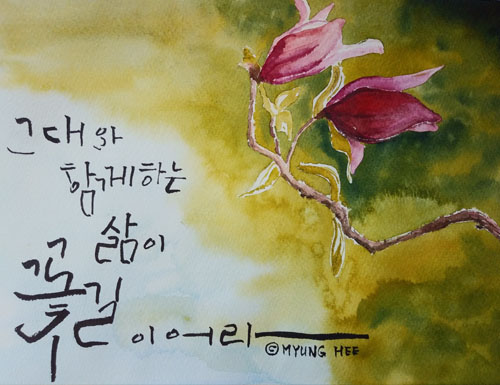 그대와
함께하는
삶이
꽃길이어라
© MYUNG HEE